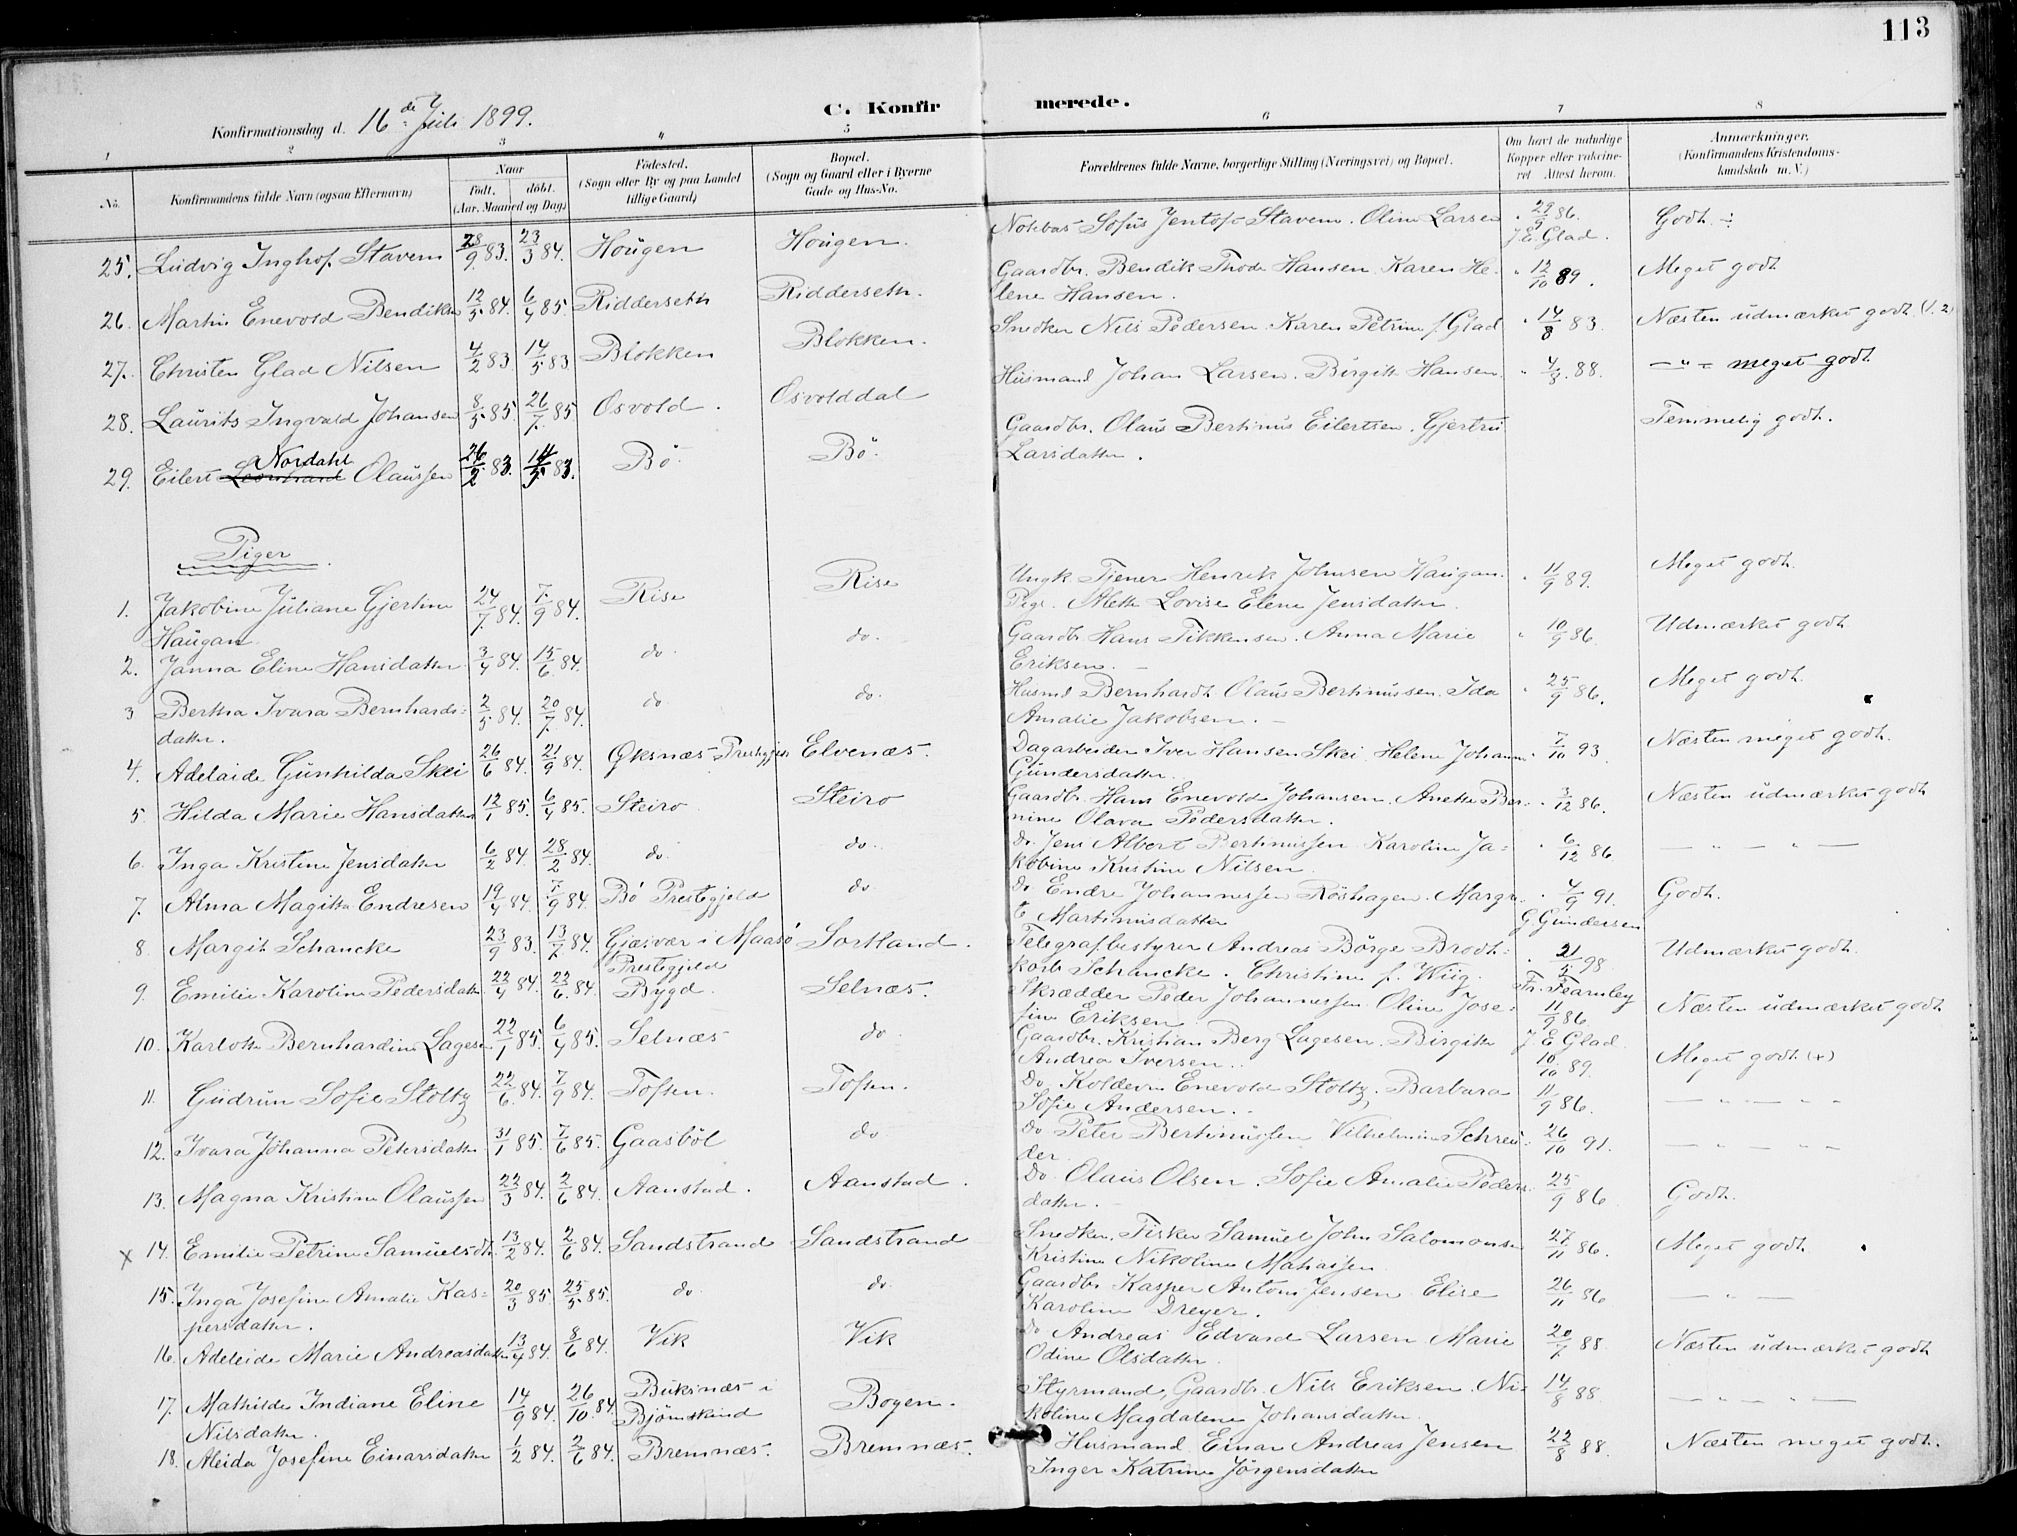 113
Konfirmationsdag d. 16de Juli 1899.
C. Konfirmerede.
1 2 3 4 5 6 7 8
No. Konfirmandens fulde Navn (ogsaa Efternavn) Naar født, døbt. (Aar, Maaned og Dag) Fødested. (Sogn eller By og paa Landet tillige Gaard) Bopæl. (Sogn og Gaard eller i Byerne Gade og Hus-No. Forældrenes fulde Navne, borgerlige Stilling (Næringsvei) og Bopæl. Om havt de naturlige Kopper eller vakcineret. Attest herom. Anmærkninger. (Konfirmandens Kristendomskundskab m. V.)
25. Ludvig Inghof. Stavem 28/9 83. 23/3 84. Hougen Hougen. Notebas Sofus Jentoft Stavem. Oline Larsen 29/9 86. J. E. Glad. Godt
26. Martin Enevold Bendiks 12/5 84. 6/4 85 Ridderseth Ridderseth. Gaardbr. Bendik Thode Hansen. Karen Helene Hansen. 12/10 89. Meget godt
27. Christen Glad Nilsen 4/2 83 14/5 83 Blokken Blokken. Snedker Nils Pedersen. Karen Petrine f. Glad 14/8 83. Næsten udmærket godt (1.2)
28. Laurits Ingvald Johansen 8/5 85 26/7 85 Osvold. Osvolddal Husmand Johan Larsen. Birgitte Hansen. 4/8. 88. — " — meget godt
29. Eilert Nordahl Olaussen 26/2 83. 14/5 83. Bø. Bø. Gaardbr. Olaus Bertinus Eilertsen. Gjertru Larsdatter. Temmelig godt.
Piger.
1. Jakobine Juliane Gjertine Haugan 24/7 84. 7/9 84. Rise Rise Ungk. Tjener Henrik Johnsen Haugan. Pige. Alette Lovise Elene Jensdatter. 11/9 89. Meget godt.
2. Janna Eline Hansdatter 3/4 84. 15/6 84. do. do. Gaardbr. Hans Tikkensen. Anna Marie Eriksen. 10/9 86. Udmærket godt
3 Bertha Ivara Bernhardsdatter. 2/5 84. 20/7 84. do do. Husmd Bernhardt Olaus Bertinussen. Ida Amalie Jakobsen. 25/9 86. Meget godt.
4. Adelaide Gunhilda Skei 26/6 84. 21/9 84. Øksnæs Prestegjæld Elvenæs. Dagarbeider Iver Hansen Skei. Helene Johanna Gundersdatter. 7/10 93. Næsten meget godt.
5. Hilda Marie Hansdatter 12/1 85. 6/4 85. Steiro Steiro Gaardbr. Hans Enevold Johansen. Anette Bernine Olava Pedersdatter. 3/12 86. Næsten udmærket godt
6. Inga Kristine Jensdatter 6/2 84. 28/2 84. do. do. do. Jens Albert Bertinussen. Karoline Jakobine Kristine Nilsen. 6/12 86 — " — " —
7. Alma Magitta Endresen 19/4 84. 7/9 84. Bø Prestegjeld do. do Endre Johannessen Røshagen. Margret Martinusdatter 4/9 91. G Gundersen Godt.
8 Margit Schancke 23/9 83. 13/7 84. Gjæsvær i Maasø Prestegjeld Sortland. Telegrafbestyrer Andreas Børge Brodtkorb Schancke. Christine f. Wiig. 21/5 98. Fr. Fearnley Udmærket godt.
9. Emilie Karoline Pedersdatter. 22/4 84. 22/6 84. Bygd. Selnæs. Skrædder Peder Johannessen. Oline Josefine Eriksen 11/9 86. J. E. Glad. Næsten udmærket godt
10. Karlotte Bernhardine Lagesen 22/1 85. 6/4 85. Selnæs do. Gaardbr. Kristian Berg Lagesen. Birgitte Andrea Iversen. 10/10 89. Meget godt (+)
11. Gudrun Sofie Stoltz 22/6 84. 7/9 84. Toften. Toften. do. Kolderu Enevold Stoltz. Barbara Sofie Andersen. 11/9 86. — " — " "
12. Ivara Johanna Petersdatter 31/1 85. 7/6 85. Gaasbøl do do Peter Bertinussen Vilhelmine Schreuder. 26/10 91. — " — " "
13. Magna Kristine Olaussen 22/3 84. 2/6 84. Aanstad. Aanstad. do. Olaus Olsen. Sofie Amalie Pedersdatter. 25/9 86 Godt.
x 14. Emilie Petrine Samuelsdtr. 13/2 84. 2/6 84. Sandstrand Sandstrand Snedker, Fisker Samuel John Salomonsen Kristine Nikoline Mathisen. 27/11 86. Meget godt.
15. Inga Josefine Amalie Kaspersdatter. 20/3 85. 25/5 85. do. do. Gaardbr Kasper Antoni Jensen Elise Karoline Dreyer. 26/11 86 — " —
16. Adeleide Marie Andreasdatter 13/4 84. 8/6 84. Vik Vik do Andreas Edvard Larsen Marie Odine Olsdatter. 20/7 88 Næsten udmærket godt
17. Mathilde Indiane Eline Nilsdatter. 14/9 84. 26/10 84. Buksnæs i Bjørnskind Bogen. Styrmand, Gaardbr. Nils Eriksen. Nikoline Magdalene Johansdatter. 14/8 88 — " — " —
18. Aleida Josefine Einarsdatter 1/2 84. 2/6 84. Bremnæs. Bremnæs. Husmand Einar Andreas Jensen Inger Katrine Jørgensdatter 22/8 88. Næsten meget godt.